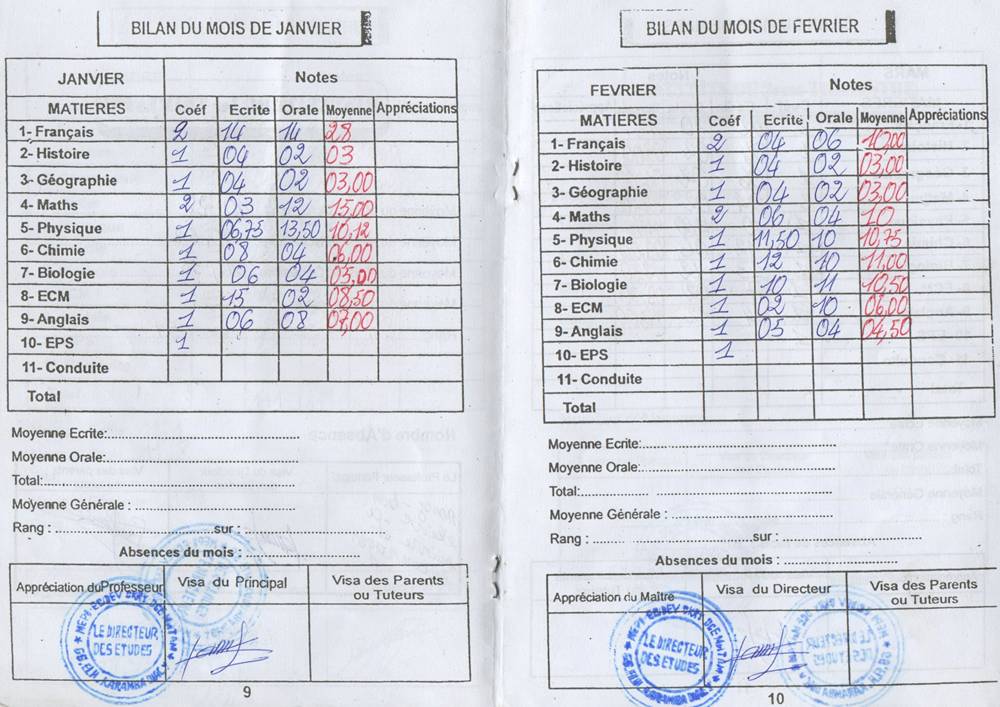 BILAN DU MOIS DE JANVIER
JANVIER Notes
MATIERES Coéf Ecrite Orale Moyenne Appréciations
1- Français 2 14 14 28
2- Histoire 1 04 02 03
3- Géographie 1 04 02 03,00
4- Maths 2 03 12 15,00
5- Physique 1 06,75 13,50 10,12
6- Chimie 1 08 04 06,00
7- Biologie 1 06 04 05,00
8- ECM 1 15 02 08,50
9- Anglais 1 06 08 07,00
10- EPS 1
11- Conduite
Total
Moyenne Ecrite:
Moyenne Orale:
Total:
Moyenne Générale :
Rang : sur :
Absences du mois :
Appréciation du Professeur Visa du Principal Visa des Parents
ou Tuteurs
LE DIRECTEUR
DES ETUDES
9
BILAN DU MOIS DE FEVRIER
FEVRIER Notes
MATIERES Coéf Ecrite Orale Moyenne Appréciations
1- Français 2 04 06 10,00
2- Histoire 1 04 02 03,00
3- Géographie 1 04 02 03,00
4- Maths 2 06 04 10
5- Physique 1 11,50 10 10,75
6- Chimie 1 12 10 11,00
7- Biologie 1 10 11 10,50
8- ECM 1 02 10 06,00
9- Anglais 1 05 04 04,50
10- EPS 1
11- Conduite
Total
Moyenne Ecrite:
Moyenne Orale:
Total:
Moyenne Générale :
Rang : sur :
Absences du mois :
Appréciation du Maître Visa du Directeur Visa des Parents
ou Tuteurs
LE DIRECTEUR
DES ETUDES
10